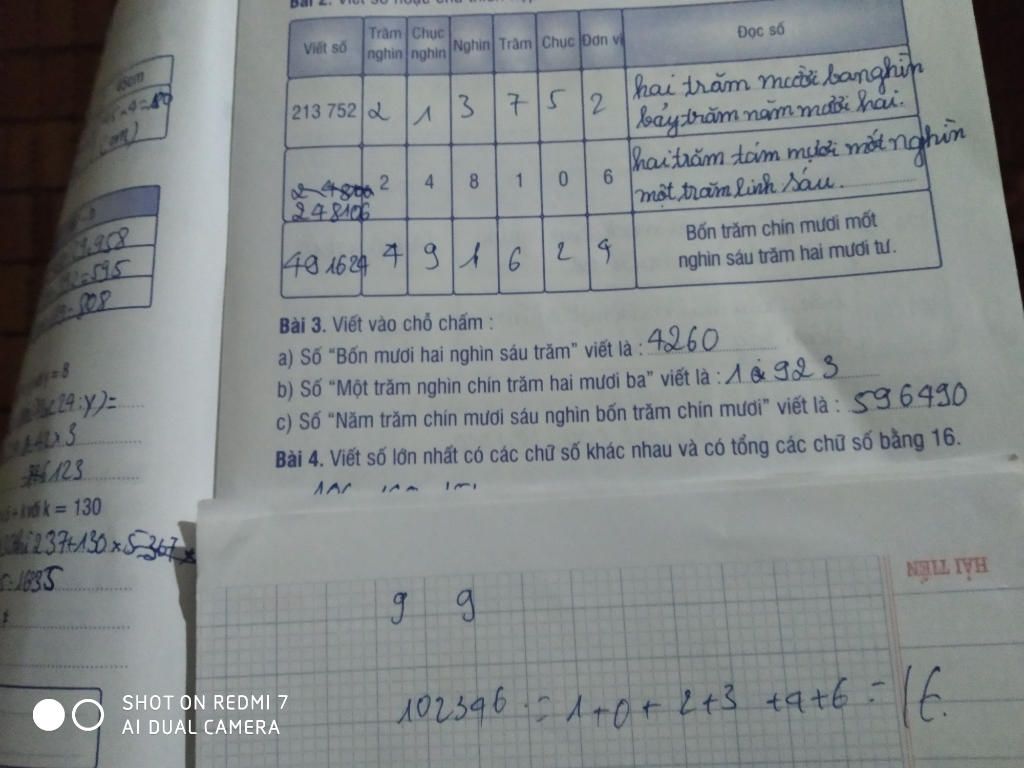 Viết số
Trăm nghìn
Chục nghìn
Nghìn
Trăm
Chục
Đơn vị
Đọc số
213 752 2 1 3 7 5 2
hai trăm mười ba nghìn
bảy trăm năm mươi hai.
248106 2 4 8 1 0 6
hai trăm tám mươi mốt nghìn
một trăm linh sáu.
491624 4 9 1 6 2 4
Bốn trăm chín mươi mốt
nghìn sáu trăm hai mươi tư.
Bài 3. Viết vào chỗ chấm :
a) Số “Bốn mươi hai nghìn sáu trăm” viết là : 4260
b) Số “Một trăm nghìn chín trăm hai mươi ba” viết là : 1 923
c) Số “Năm trăm chín mươi sáu nghìn bốn trăm chín mươi” viết là : 596490
Bài 4. Viết số lớn nhất có các chữ số khác nhau và có tổng các chữ số bằng 16.
6123
k = 130
237+130×5
1635
HẢI TIẾN
9 9
102346 = 1+0+2+3+4+6=16.
SHOT ON REDMI 7
AI DUAL CAMERA